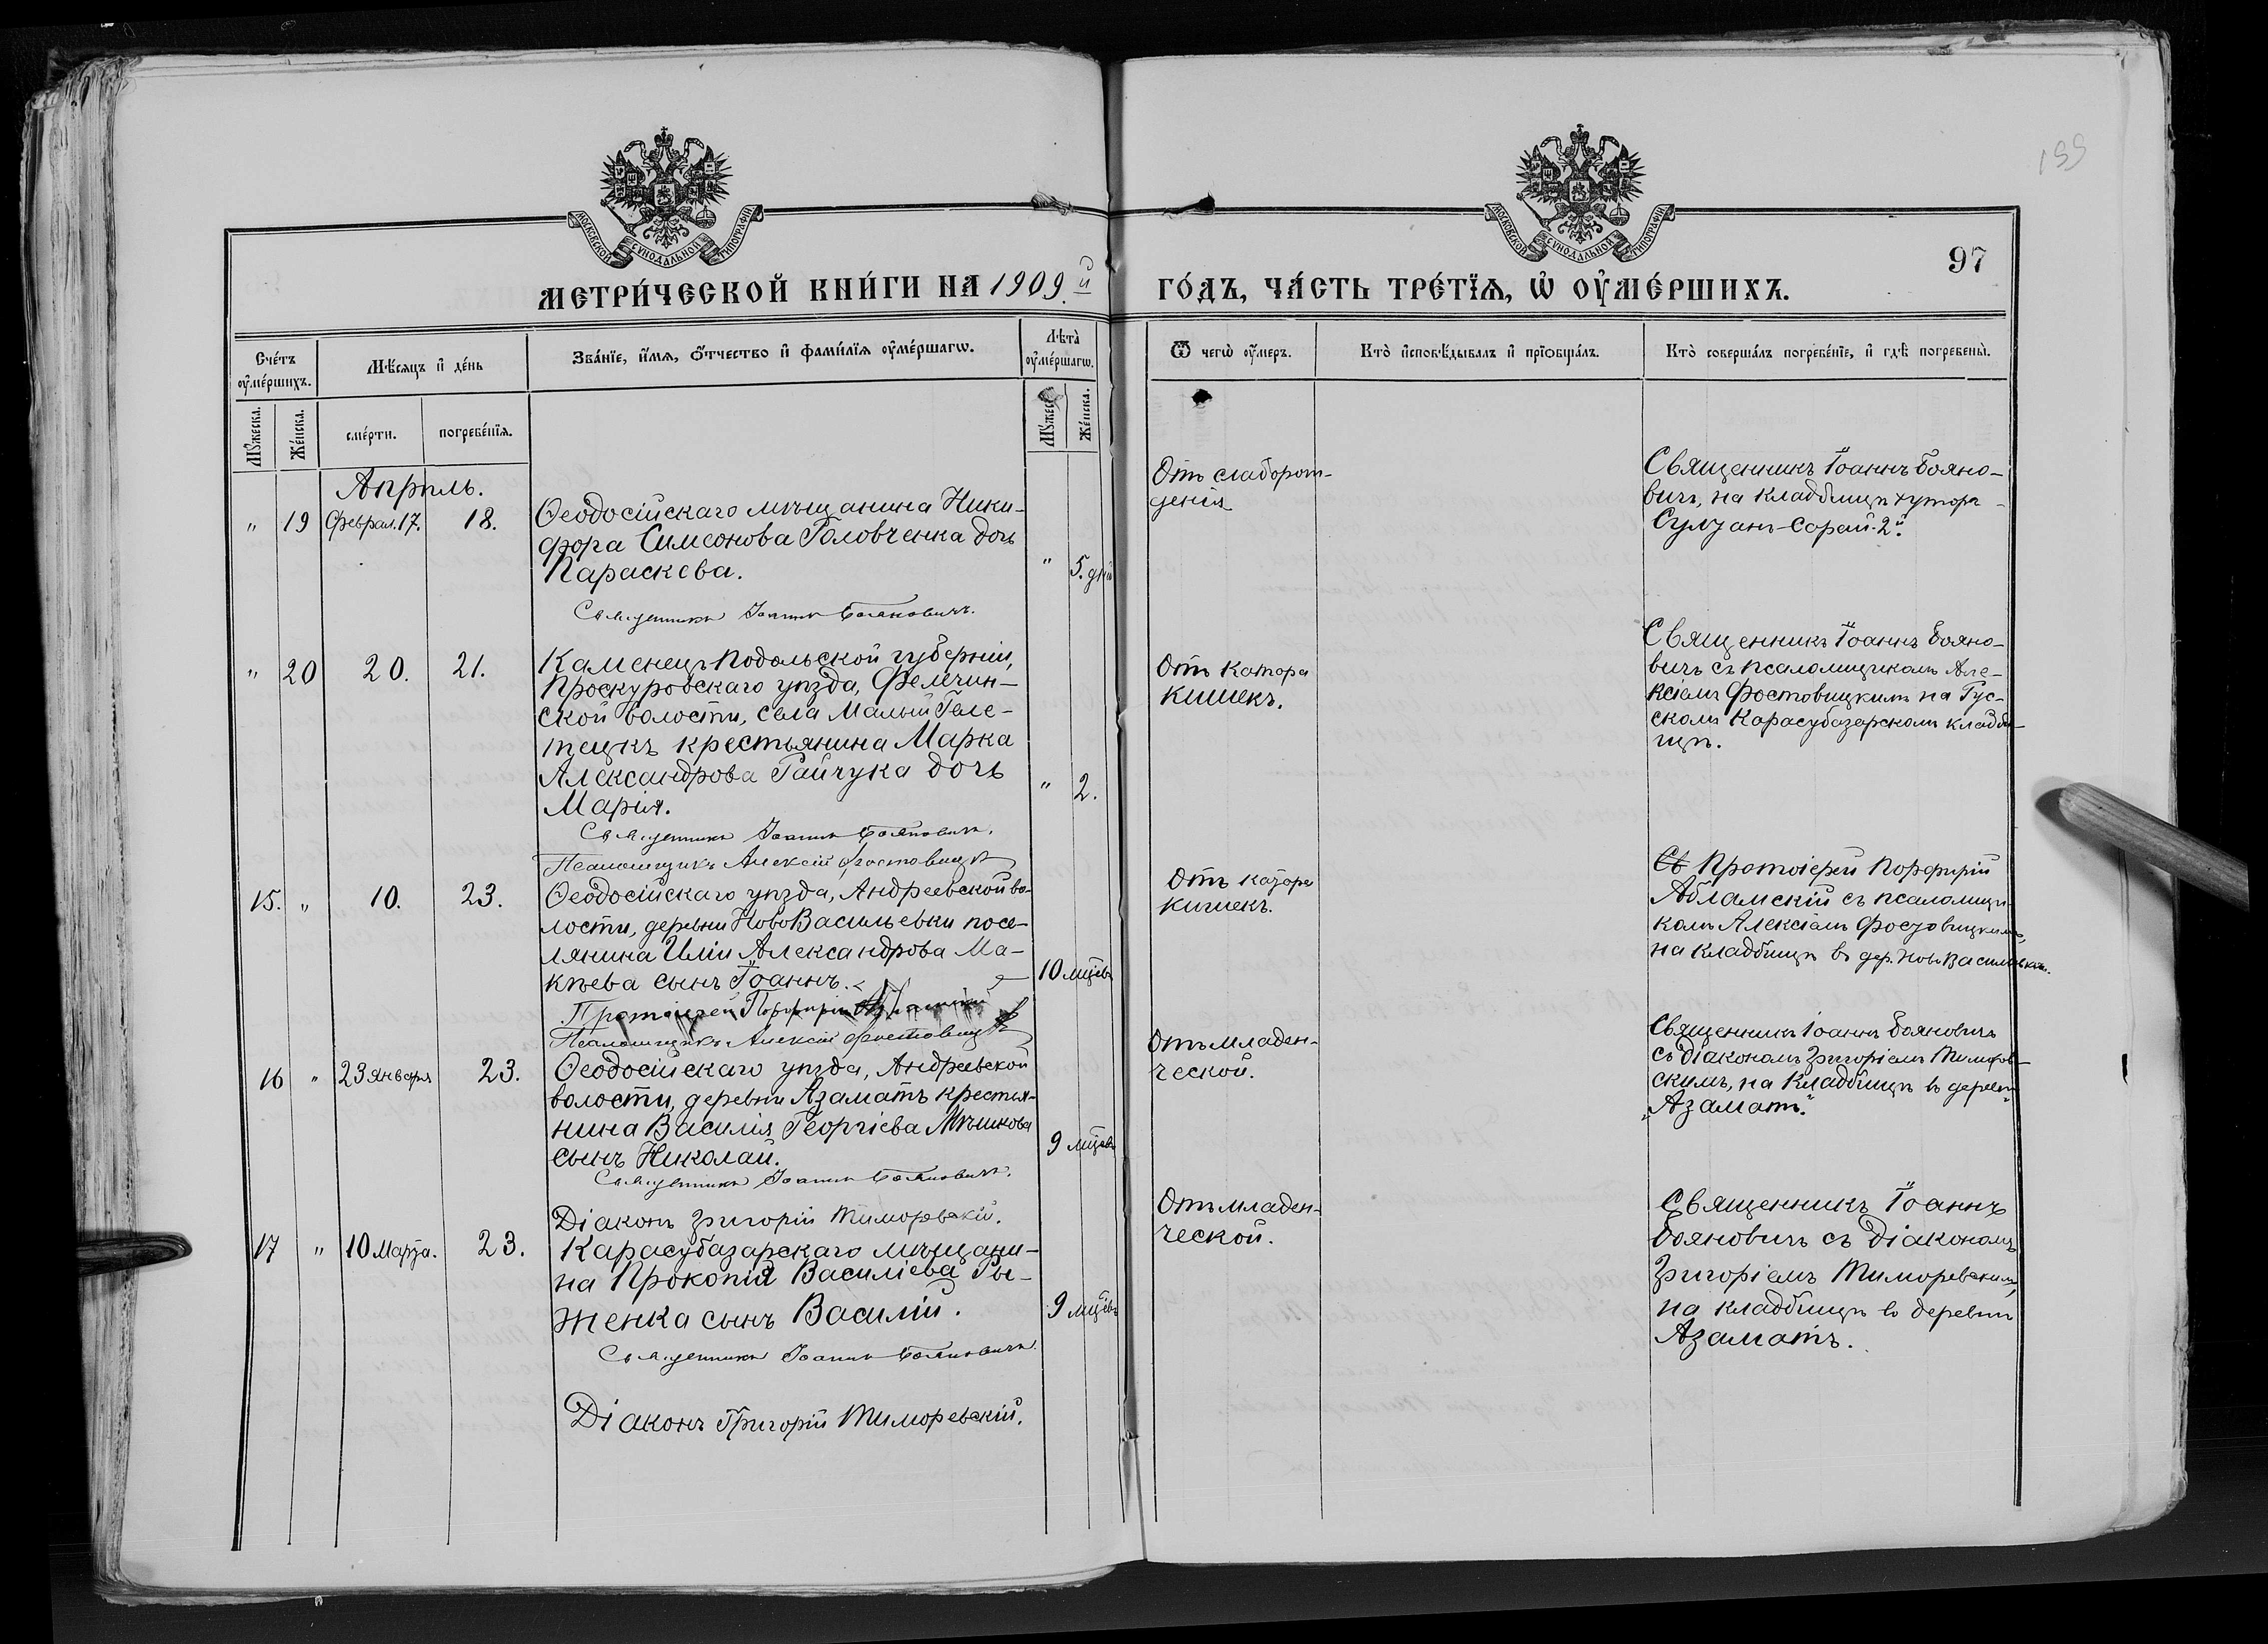 199
МОСКОВСКОЙ СѴНОДАЛЬНОЙ ТИПОГРАФІИ
МОСКОВСКОЙ СѴНОДАЛЬНОЙ ТИПОГРАФІИ
97
МЕТРИ́ЧЕСКОЙ КНИ́ГИ НА 1909й ГО́ДЪ, ЧА́СТЬ ТРЕ́ТЇѦ, Ѡ҆ ОУ҆МЕ́РШИХЪ.
Сче́тъ оу҆ме́ршихъ.
Мѣ́сяцъ и҆ де́нь
Зва́нїе, и҆́мѧ, ѻ҆́тчество и҆ фами́лїѧ оу҆ме́ршагѡ.
Лѣ́та оу҆ме́ршагѡ.
Ѿ чегѡ̀ оу҆́меръ.
Кто̀ и҆сповѣ́дывалъ и҆ прїѡбща́лъ.
Кто̀ соверша́лъ погребе́нїе, и҆ гдѣ̀ погребены̀.
Мꙋ́жеска.
Же́нска.
сме́рти.
погребе́нїѧ.
Мꙋ́жеска.
Же́нска.
Апрѣль.
" 19 Феврал. 17. 18.
Ѳеодосійскаго мѣщанина Ники-
фора Симеонова Головченка дочь
Параскева.
" 5. дній
Священникъ Іоаннъ Бояновичъ.
Отъ слаборож-
денія
Священникъ Іоаннъ Бояно-
вичъ, на кладбищѣ хутора
Султанъ-Сарай-2й.
" 20 20. 21.
Каменецъ Подольской губерніи,
Проскуровскаго уѣзда, Фельчин-
ской волости, села Малый Геле-
тецкъ крестьянина Марка
Александрова Гайчука дочь
Марія.
" 2.
Священникъ Іоаннъ Бояновичъ.
Псаломщикъ Алексій Фостовицкій
Отъ катара
кишекъ.
Священникъ Іоаннъ Бояно-
вичъ съ псаломщикомъ Але-
ксіемъ Фостовицкимъ на Рус-
скомъ Карасубазарскомъ кладби-
щѣ.
15. " 10. 23.
Ѳеодосійскаго уѣзда, Андреевской во-
лости, деревни НовоВасильевки посе-
лянина Иліи Александрова Ма-
кѣева сынъ Іоаннъ.
10 мцевъ
Протоіерей Порфирій Абламскій
Псаломщикъ Алексій Фостовицкій
Отъ катара
кишекъ.
Св Протоіерей Порфирій
Абламскій съ псаломщи-
комъ Алексіемъ Фостовицкимъ,
на кладбищѣ въ дер. НовоВасильевкѣ.
16 " 23 января 23.
Ѳеодосійскаго уѣзда, Андреевской
волости, деревни Азаматъ крестья-
нина Василія Георгіева Мѣшкова
сынъ Николай.
9 мцевъ
Священникъ Іоаннъ Бояновичъ.
Діаконъ Григорій Тиморевскій.
Отъ младен-
ческой.
Священникъ Іоаннъ Бояновичъ
съ діакономъ Григоріемъ Тиморев-
скимъ, на кладбищѣ въ деревнѣ
„Азаматъ."
17 " 10 Марта. 23.
Карасубазарскаго мѣщани-
на Прокопія Василіева Ры-
женка сынъ Василій.
9 мцевъ
Священникъ Іоаннъ Бояновичъ
Діаконъ Григорій Тиморевскій.
Отъ младен-
ческой.
Священникъ Іоаннъ
Бояновичъ съ діакономъ
Григоріемъ Тиморевскимъ,
на кладбищѣ въ деревнѣ
Азаматъ.